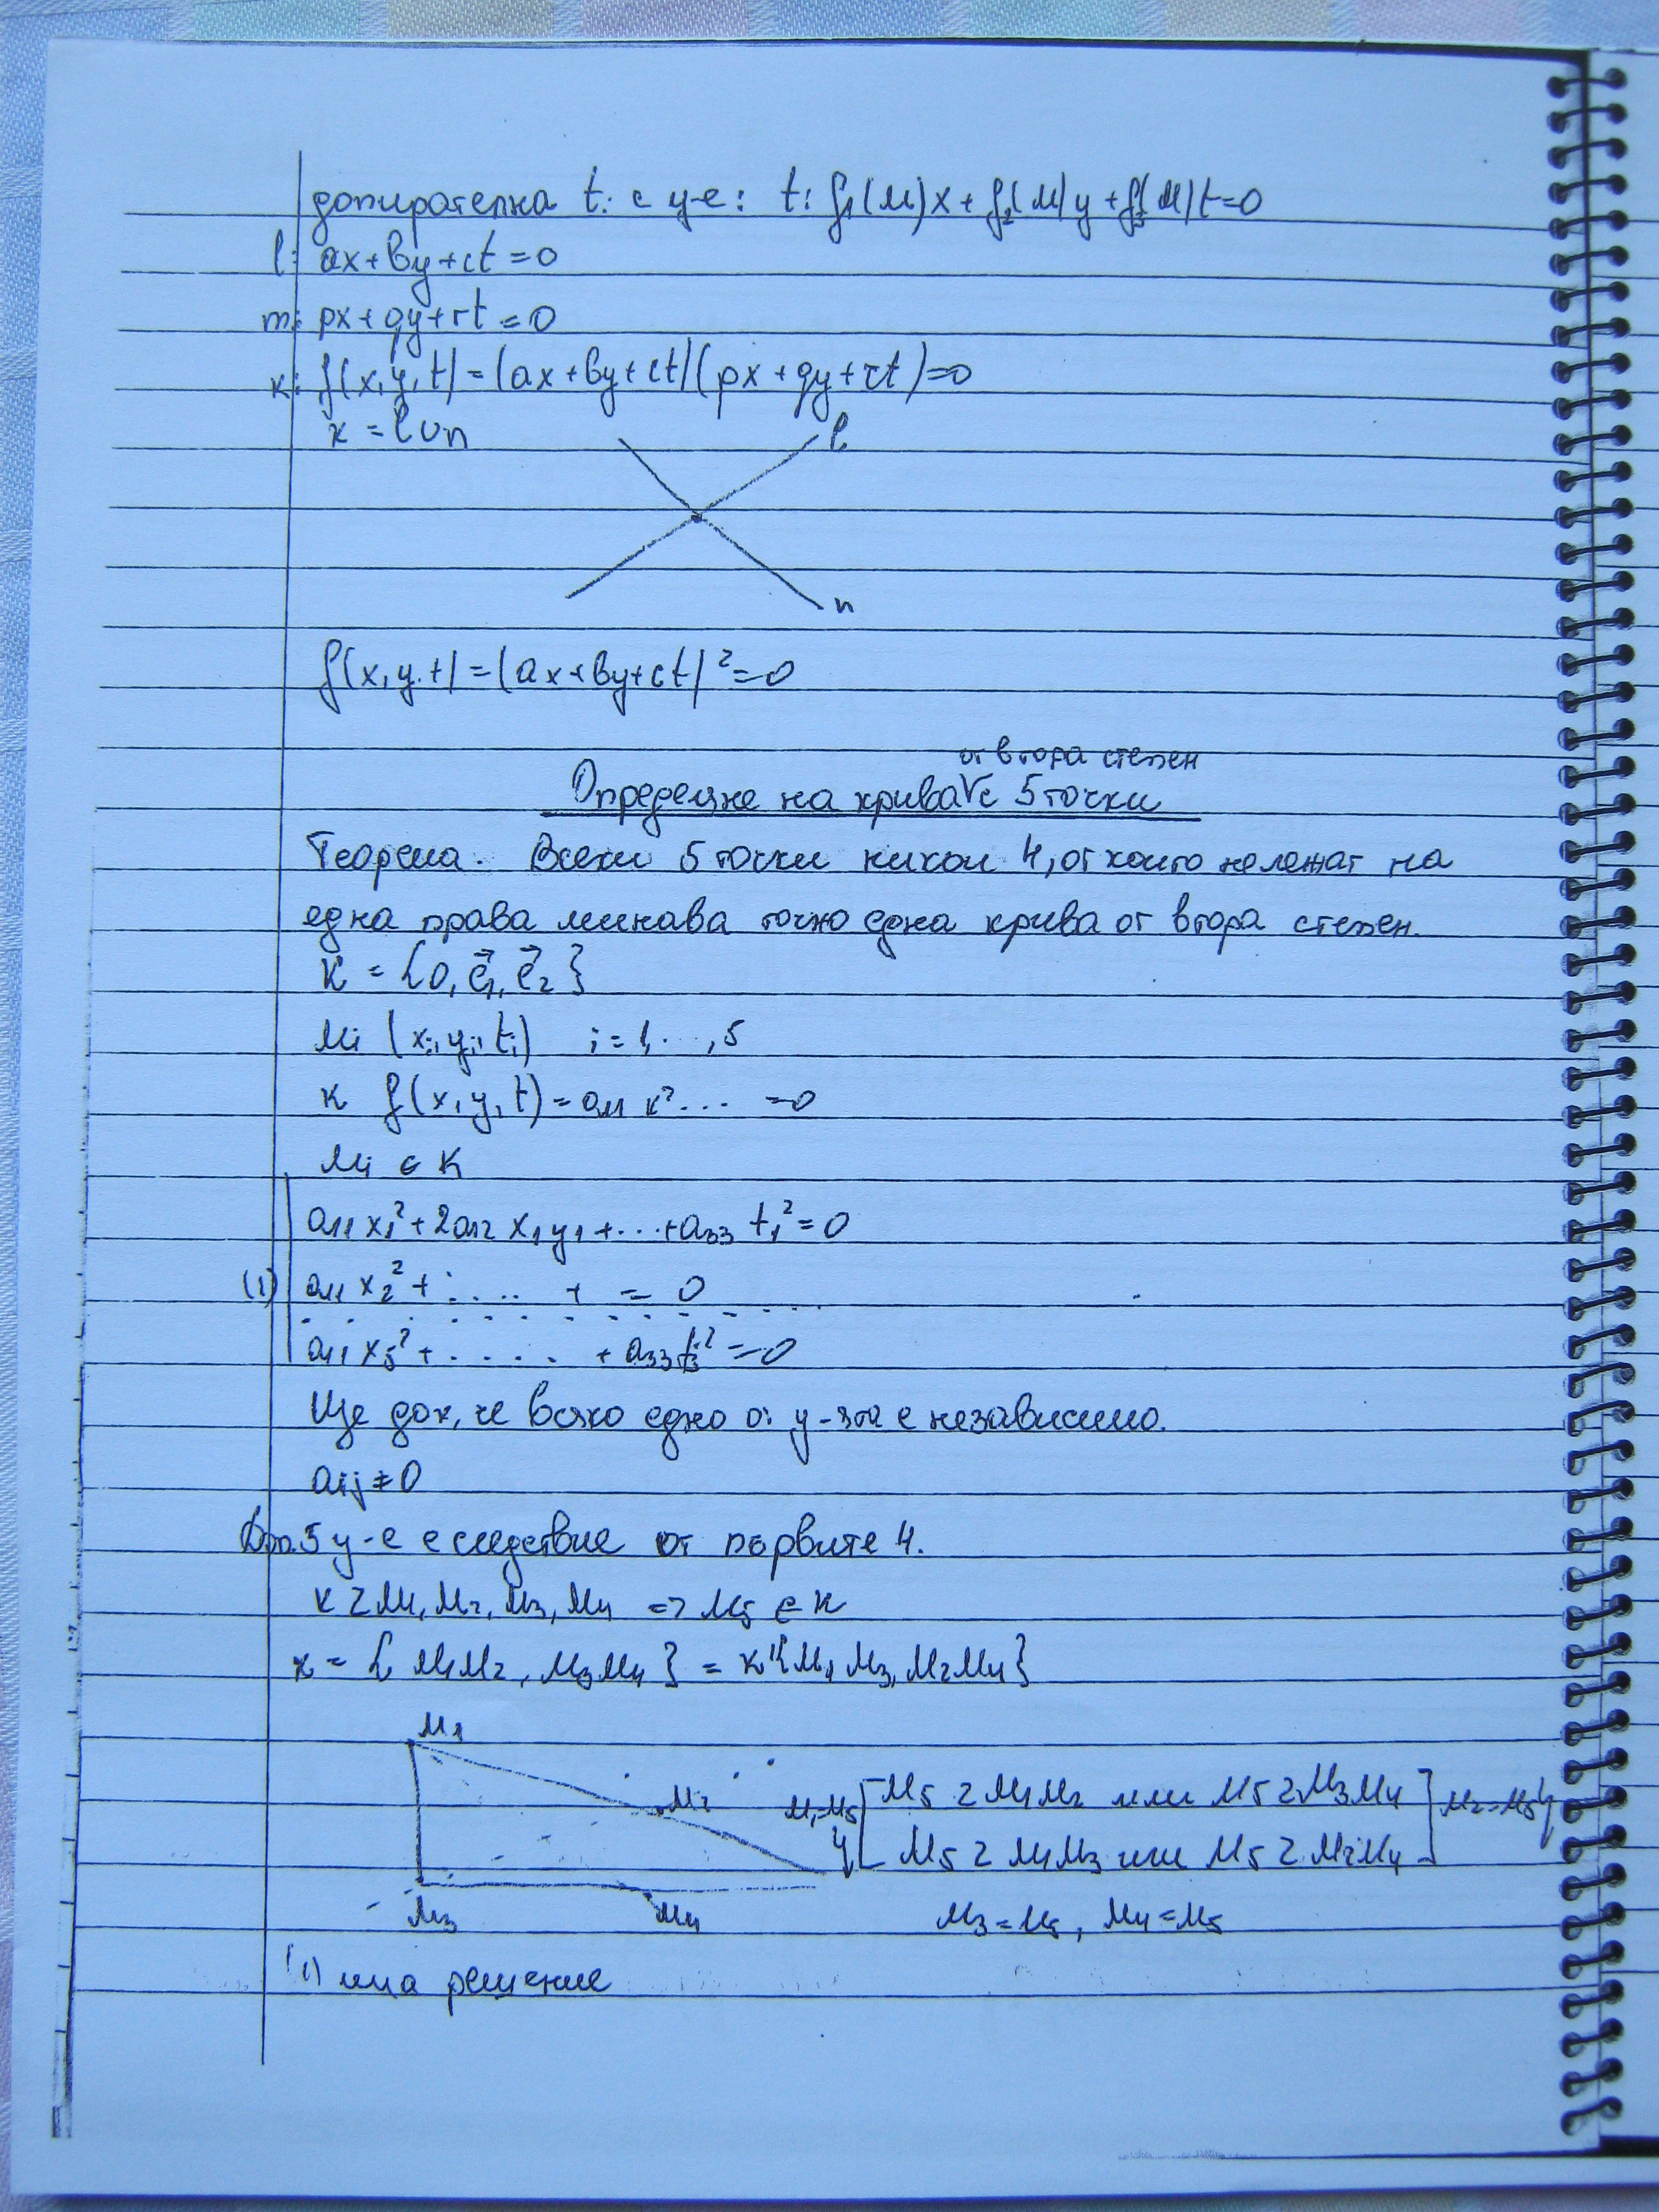 допирателна t: с у-е: t: f₁(M)x + f₂(M)y + f₃(M)t=0
l: ax+by+ct=0
m: px+qy+rt=0
k: f(x,y,t)=(ax+by+ct)(px+qy+rt)=0
k = l∪n
l
n
f(x,y,t)=(ax+by+ct)²=0
от втора степен
Определяне на крива с 5 точки
Теорема. Всеки 5 точки никои 4, от които не лежат на
една права минава точно една крива от втора степен.
K = {O, e⃗₁, e⃗₂}
Mi (xi, yi, ti) i=1,...,5
k f(x,y,t)=a₁₁x²... =0
Mi ∈ k
a₁₁x₁²+2a₁₂x₁y₁+...+a₃₃t₁²=0
(1) a₁₁x₂²+ .... + = 0
a₁₁x₅²+ .... + a₃₃t₅²=0
Ще док, че всяко едно от у-ята е независимо.
aij ≠ 0
Доп. 5 у-е е следствие от първите 4.
k Z M₁, M₂, M₃, M₄ => M₅ ∈ k
k = { M₁M₂, M₃M₄ } = k'{M₁M₃, M₂M₄}
M₁
M₂ M₁=M₅ [ M₅ Z M₁M₂ или M₅ Z M₃M₄ ] M₂=M₅
M₅ Z M₁M₃ или M₅ Z M₂M₄
M₃ M₄ M₃=M₅, M₄=M₅
(1) има решение